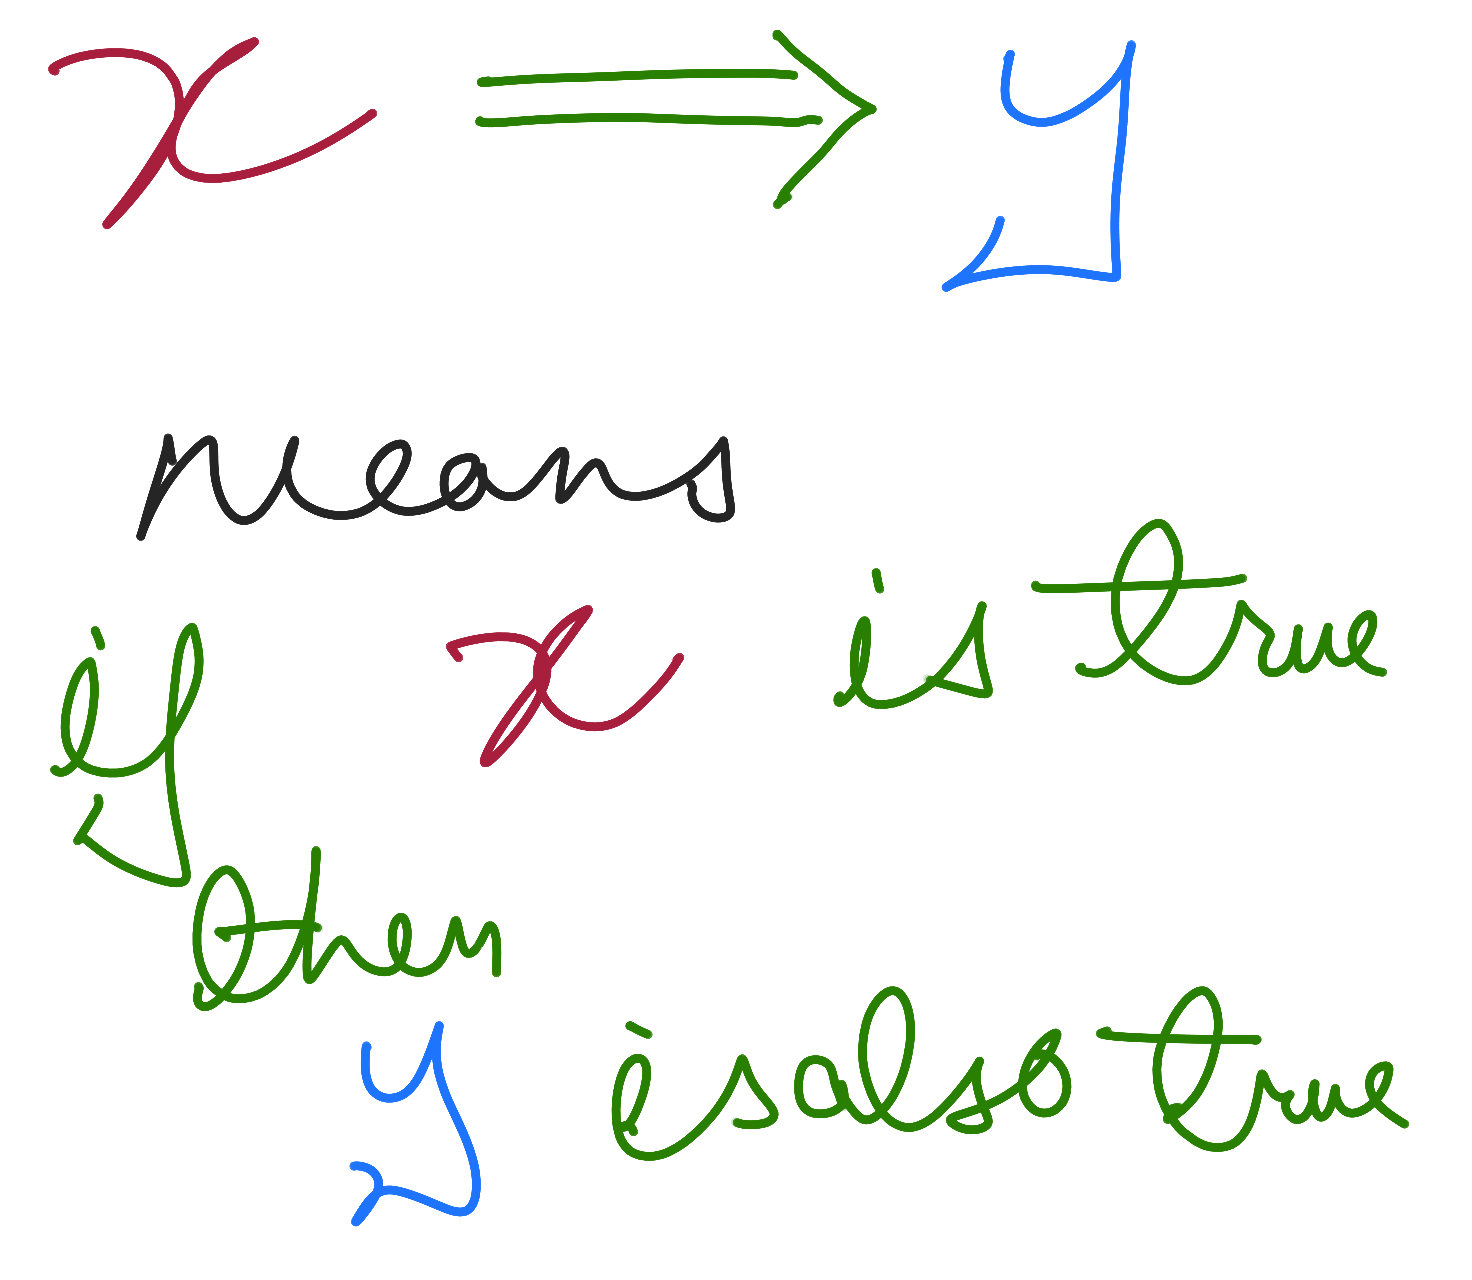 x ⇒ y
means
if x is true
then
y is also true